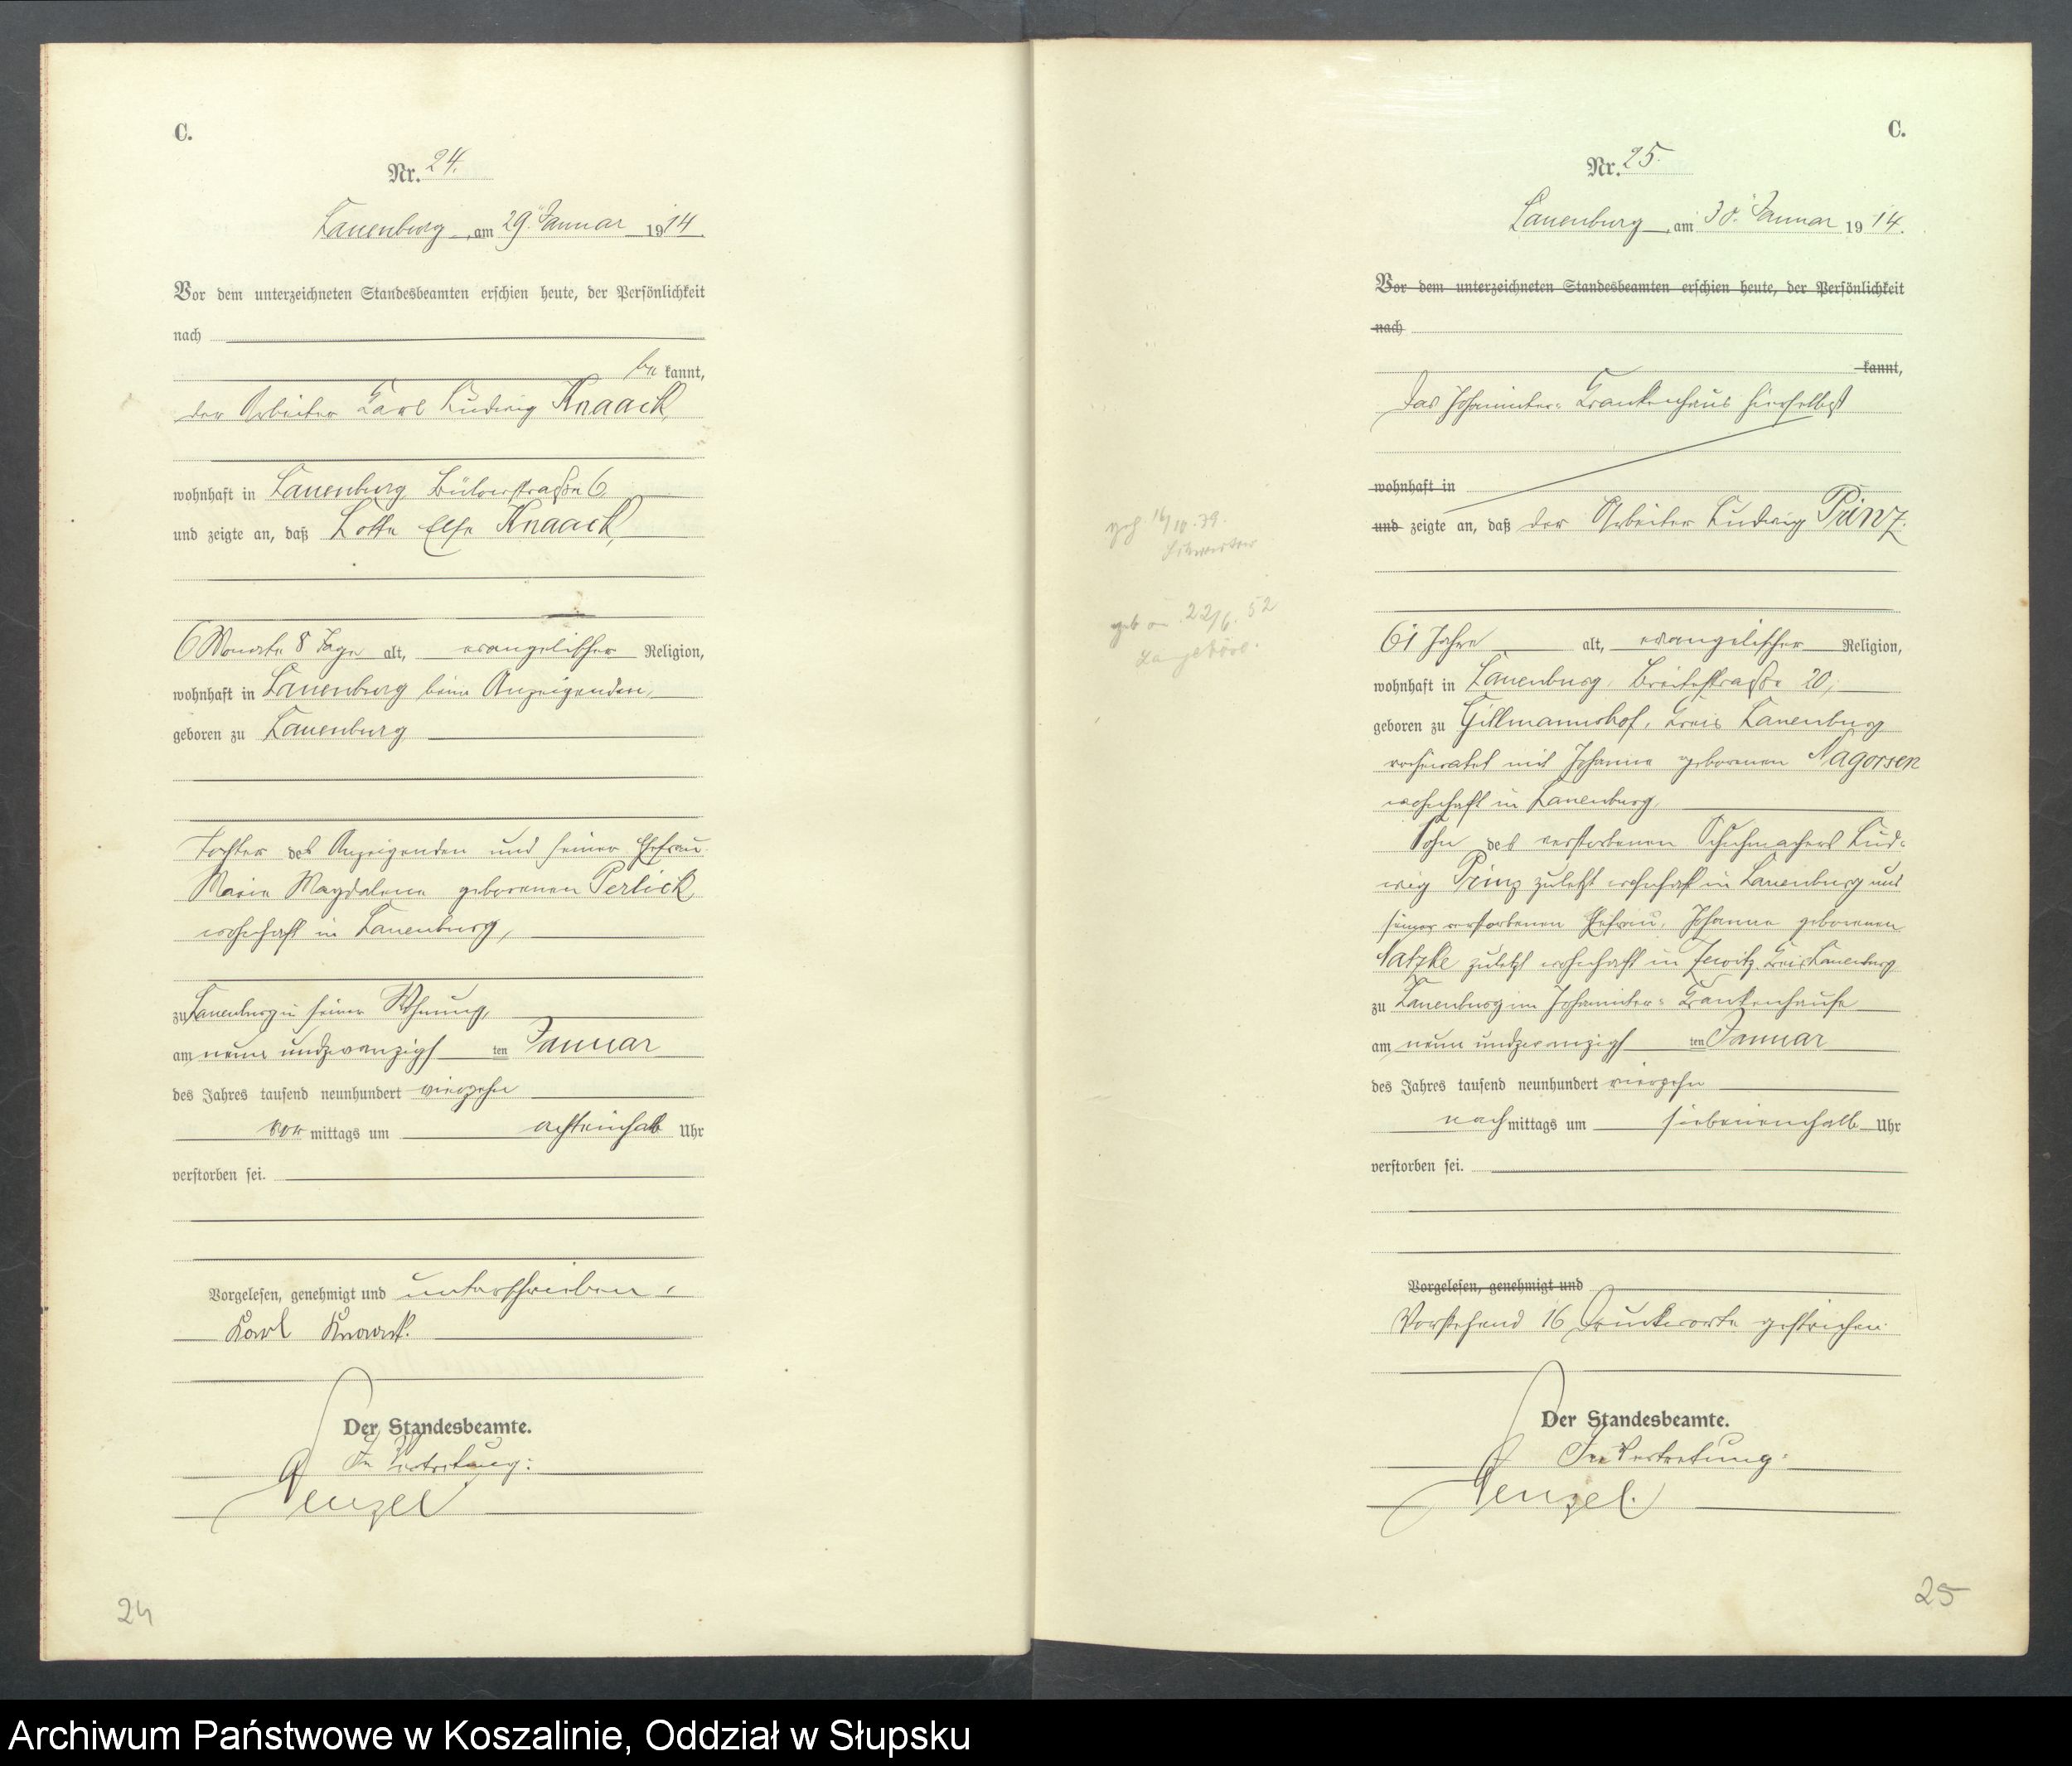 C.
Nr. 24.
Lauenburg, am 29. Januar 1914.
Vor dem unterzeichneten Standesbeamten erschien heute, der Persönlichkeit
nach
be kannt,
der Arbeiter Karl Ludwig Knaack,
wohnhaft in Lauenburg Bülowstraße 6,
und zeigte an, daß Lotte Else Knaack,
6 Monate 8 Tage alt, evangelischer Religion,
wohnhaft in Lauenburg beim Anzeigenden,
geboren zu Lauenburg
Tochter des Anzeigenden und seiner Ehefrau
Marie Magdalene geborenen Perlick
wohnhaft in Lauenburg,
zu Lauenburg in seiner Wohnung,
am neun undzwanzigsten Januar
des Jahres tausend neunhundert vierzehn
vor mittags um achteinhalb Uhr
verstorben sei.
Vorgelesen, genehmigt und unterschrieben.
Karl Knaack.
Der Standesbeamte.
In Vertretung:
24
C.
Nr. 25.
Lauenburg, am 30. Januar 1914.
Vor dem unterzeichneten Standesbeamten erschien heute, der Persönlichkeit
nach
kannt,
Das Johanniter-Krankenhaus hierselbst
wohnhaft in
und zeigte an, daß der Arbeiter Ludwig Prinz.
61 Jahre alt, evangelischer Religion,
wohnhaft in Lauenburg, Breitestraße 20,
geboren zu Gillmannshof, Kreis Lauenburg
verheiratet mit Johanne geborenen Nagorsen
wohnhaft in Lauenburg,
Sohn des verstorbenen Schuhmachers Lud-
wig Prinz zuletzt wohnhaft in Lauenburg und
seiner verstorbenen Ehefrau, Johanne geborenen
Natzke zuletzt wohnhaft in Jewitz Kreis Lauenburg
zu Lauenburg im Johanniter-Krankenhause
am neun undzwanzigsten Januar
des Jahres tausend neunhundert vierzehn
nach mittags um siebeneinhalb Uhr
verstorben sei.
Vorgelesen, genehmigt und
Vorstehend 16 Druckworte gestrichen
Der Standesbeamte.
In Vertretung:
25
16/10.79.
22/6. 52
Archiwum Państwowe w Koszalinie, Oddział w Słupsku